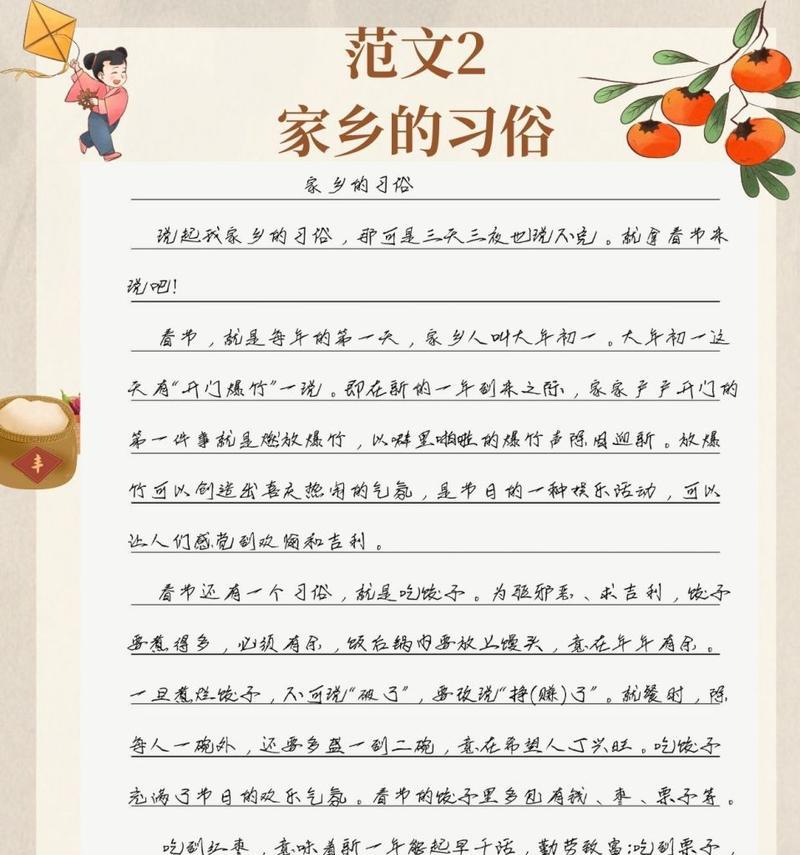 范文2
家乡的习俗
家乡的习俗
说起我家乡的习俗，那可是三天三夜也说不完。就拿春节来
说吧！
春节，就是每年的第一天，家乡人叫大年初一。大年初一这
天有“开门爆竹”一说。即在新的一年到来之际，家家户户开门的
第一件事就是燃放爆竹，以噼里啪啦的爆竹声除旧迎新。放爆
竹可以创造出喜庆热闹的气氛，是节日的一种娱乐活动，可以
让人们感觉到欢愉和吉利。
春节还有一个习俗，就是吃饺子。为驱邪恶、求吉利，饺子
要煮得多，必须有余，饭后锅内要放上馒头，意在年年有余。
一旦煮烂饺子，不可说“破了”，要改说“挣(赚)了”。就餐时，除
每人一碗外，还要多盛一到二碗，意在希望人丁兴旺。吃饺子
充满了节日的欢乐气氛。春节的饺子里多包有钱、枣、栗子等。
吃到红枣，意味着新一年能起早干活，勤劳致富；吃到栗子，
丰